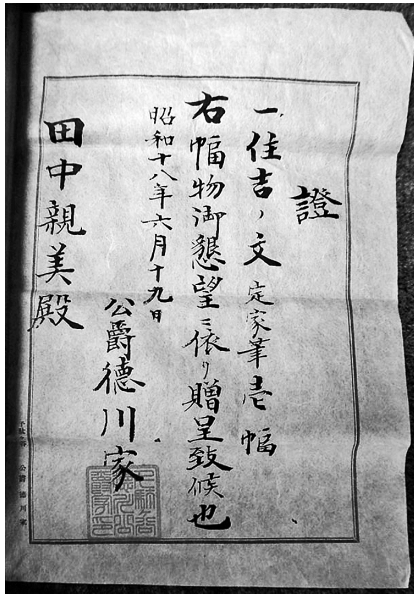 證
一、住吉ノ文 定家筆壱幅
右幅物御懇望ニ依リ贈呈致候也
昭和十八年六月十九日
公爵德川家
田中親美殿
公爵德川家